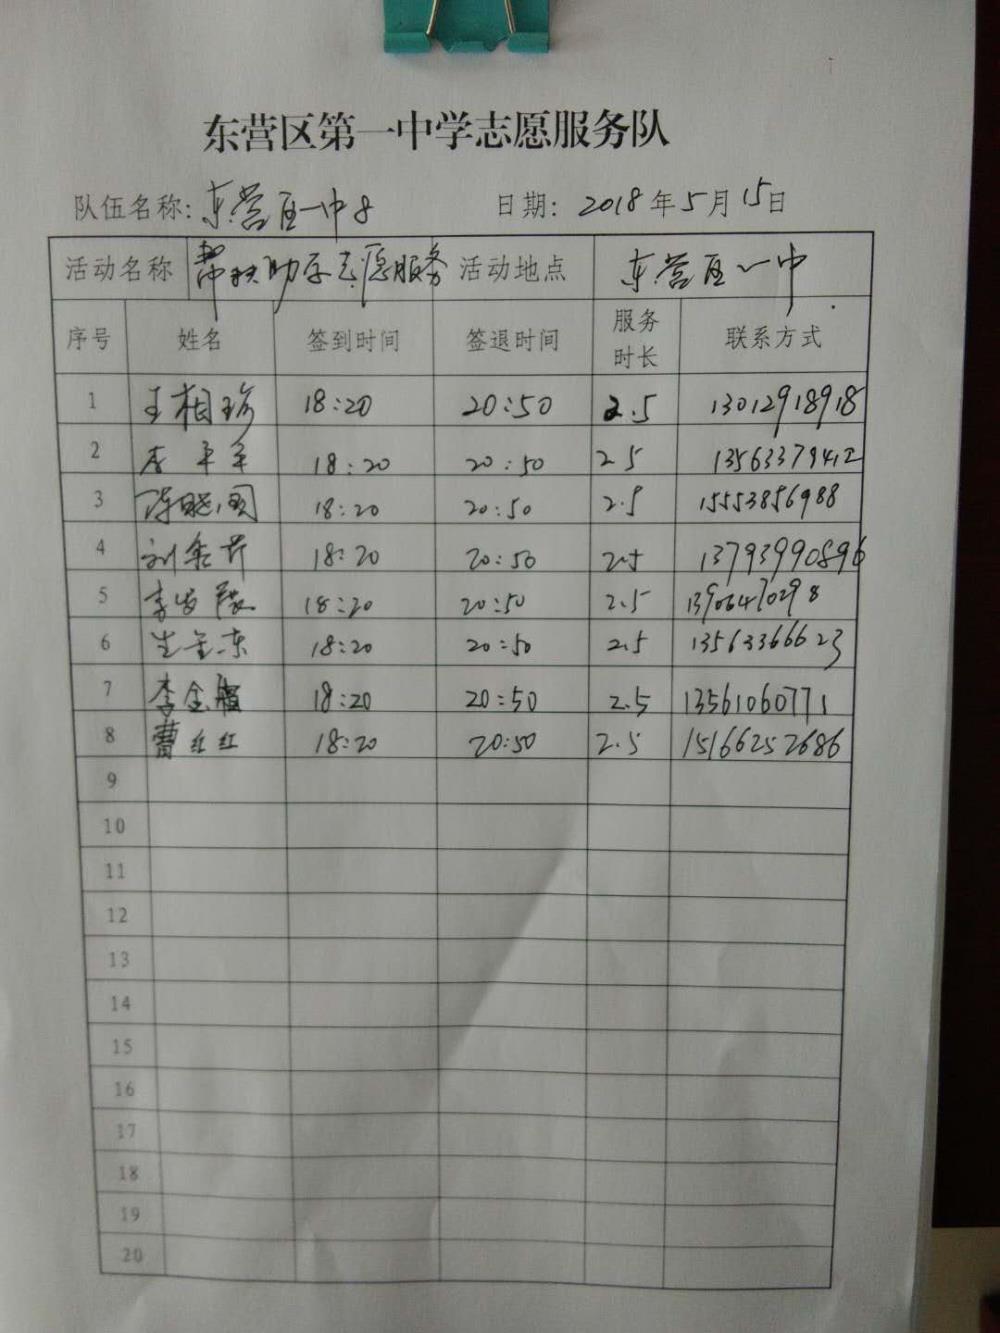 东营区第一中学志愿服务队
队伍名称: 东营区一中8 日期: 2018年5月15日
活动名称 帮扶助学志愿服务 活动地点 东营区一中
序号 姓名 签到时间 签退时间 服务时长 联系方式
1 王相珍 18:20 20:50 2.5 13012918918
2 18:20 20:50 2.5 13563379412
3 18:20 20:50 2.5 15553856988
4 18:20 20:50 2.5 13793990896
5 18:20 20:50 2.5 13906470298
6 18:20 20:50 2.5 13563366623
7 李金 18:20 20:50 2.5 13561060771
8 曹红红 18:20 20:50 2.5 15166252686
9
10
11
12
13
14
15
16
17
18
19
20